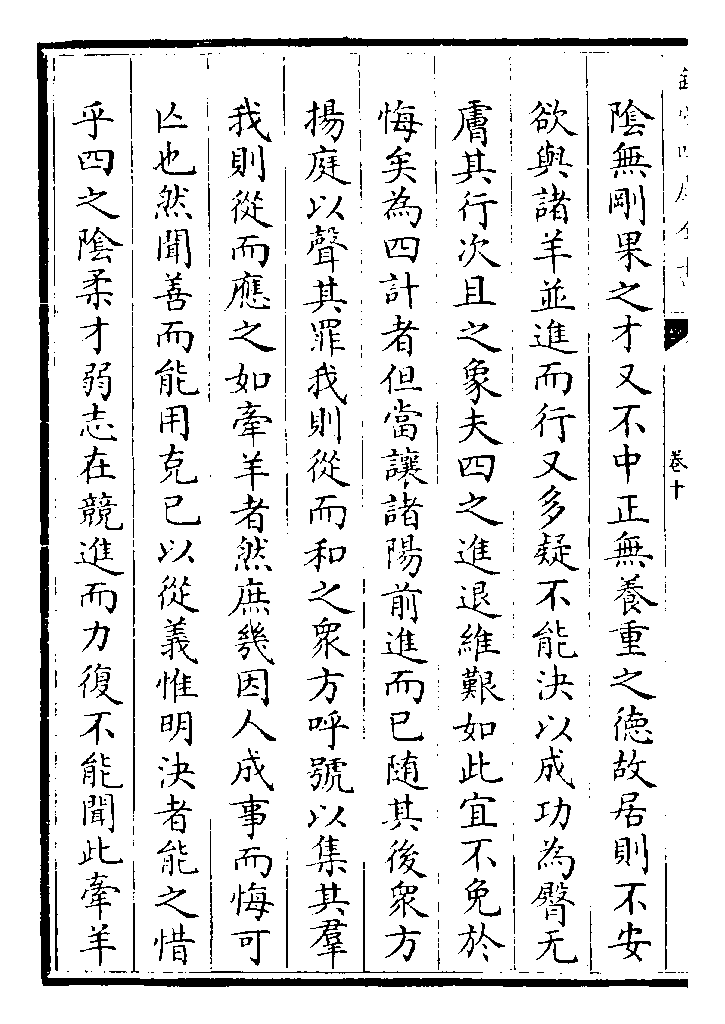 卷十
陰無剛果之才又不中正無養重之德故居則不安
欲與諸羊並進而行又多疑不能決以成功為臀无
膚其行次且之象夫四之進退維艱如此宜不免於
悔矣為四計者但當讓諸陽前進而已随其後衆方
揚庭以聲其罪我則從而和之衆方呼號以集其羣
我則從而應之如牽羊者然庶幾因人成事而悔可
亾也然聞善而能用克已以從義惟明決者能之惜
乎四之陰柔才弱志在競進而力復不能聞此牽羊